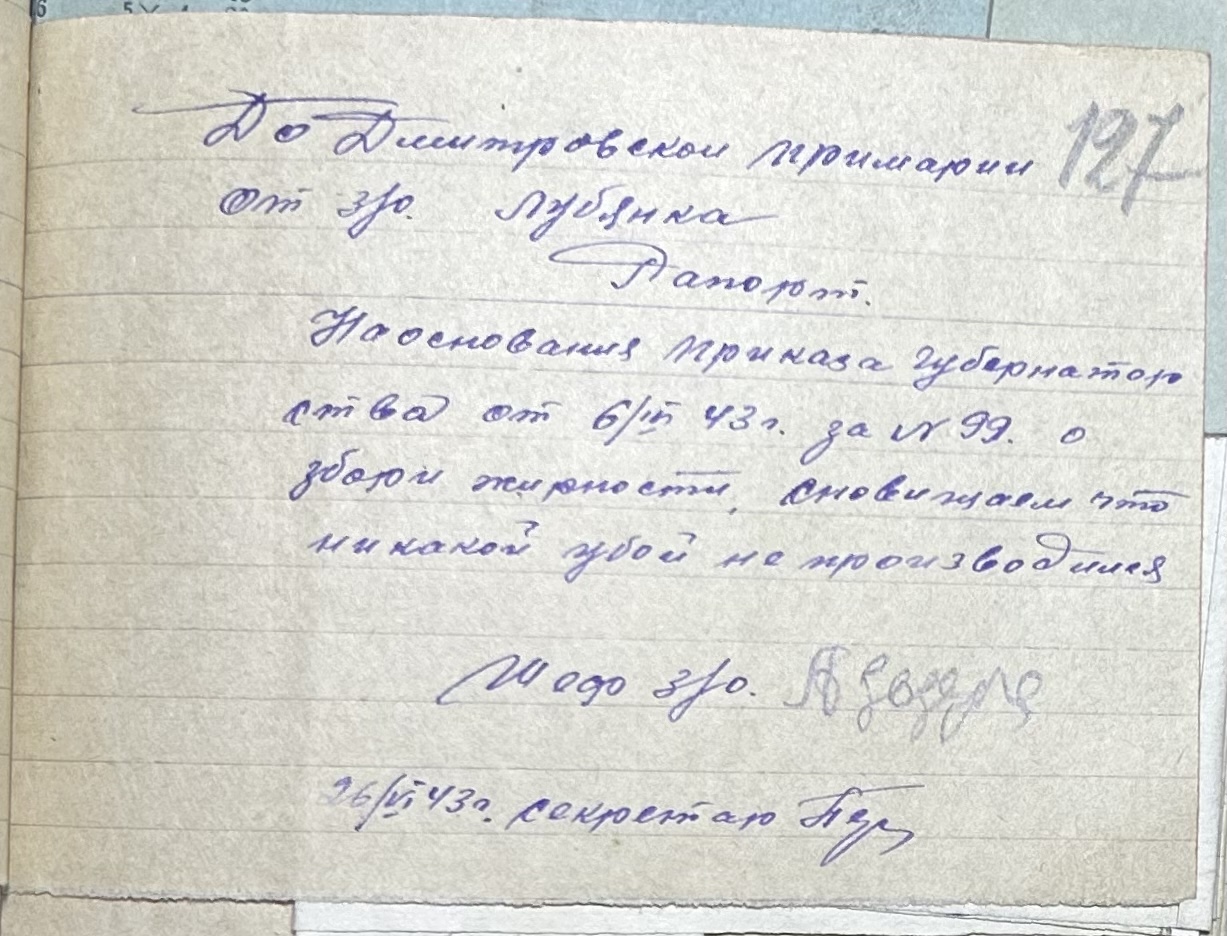 127
До Дмитровской примарии
от з/о. Лубянка
Рапорт.
На основания приказа губернатор
ства от 6/III 43 г. за № 99. о
збори жирности, сповищаем что
никакой убой не производился
Шеф з/о.
26/VI 43 г. секретар